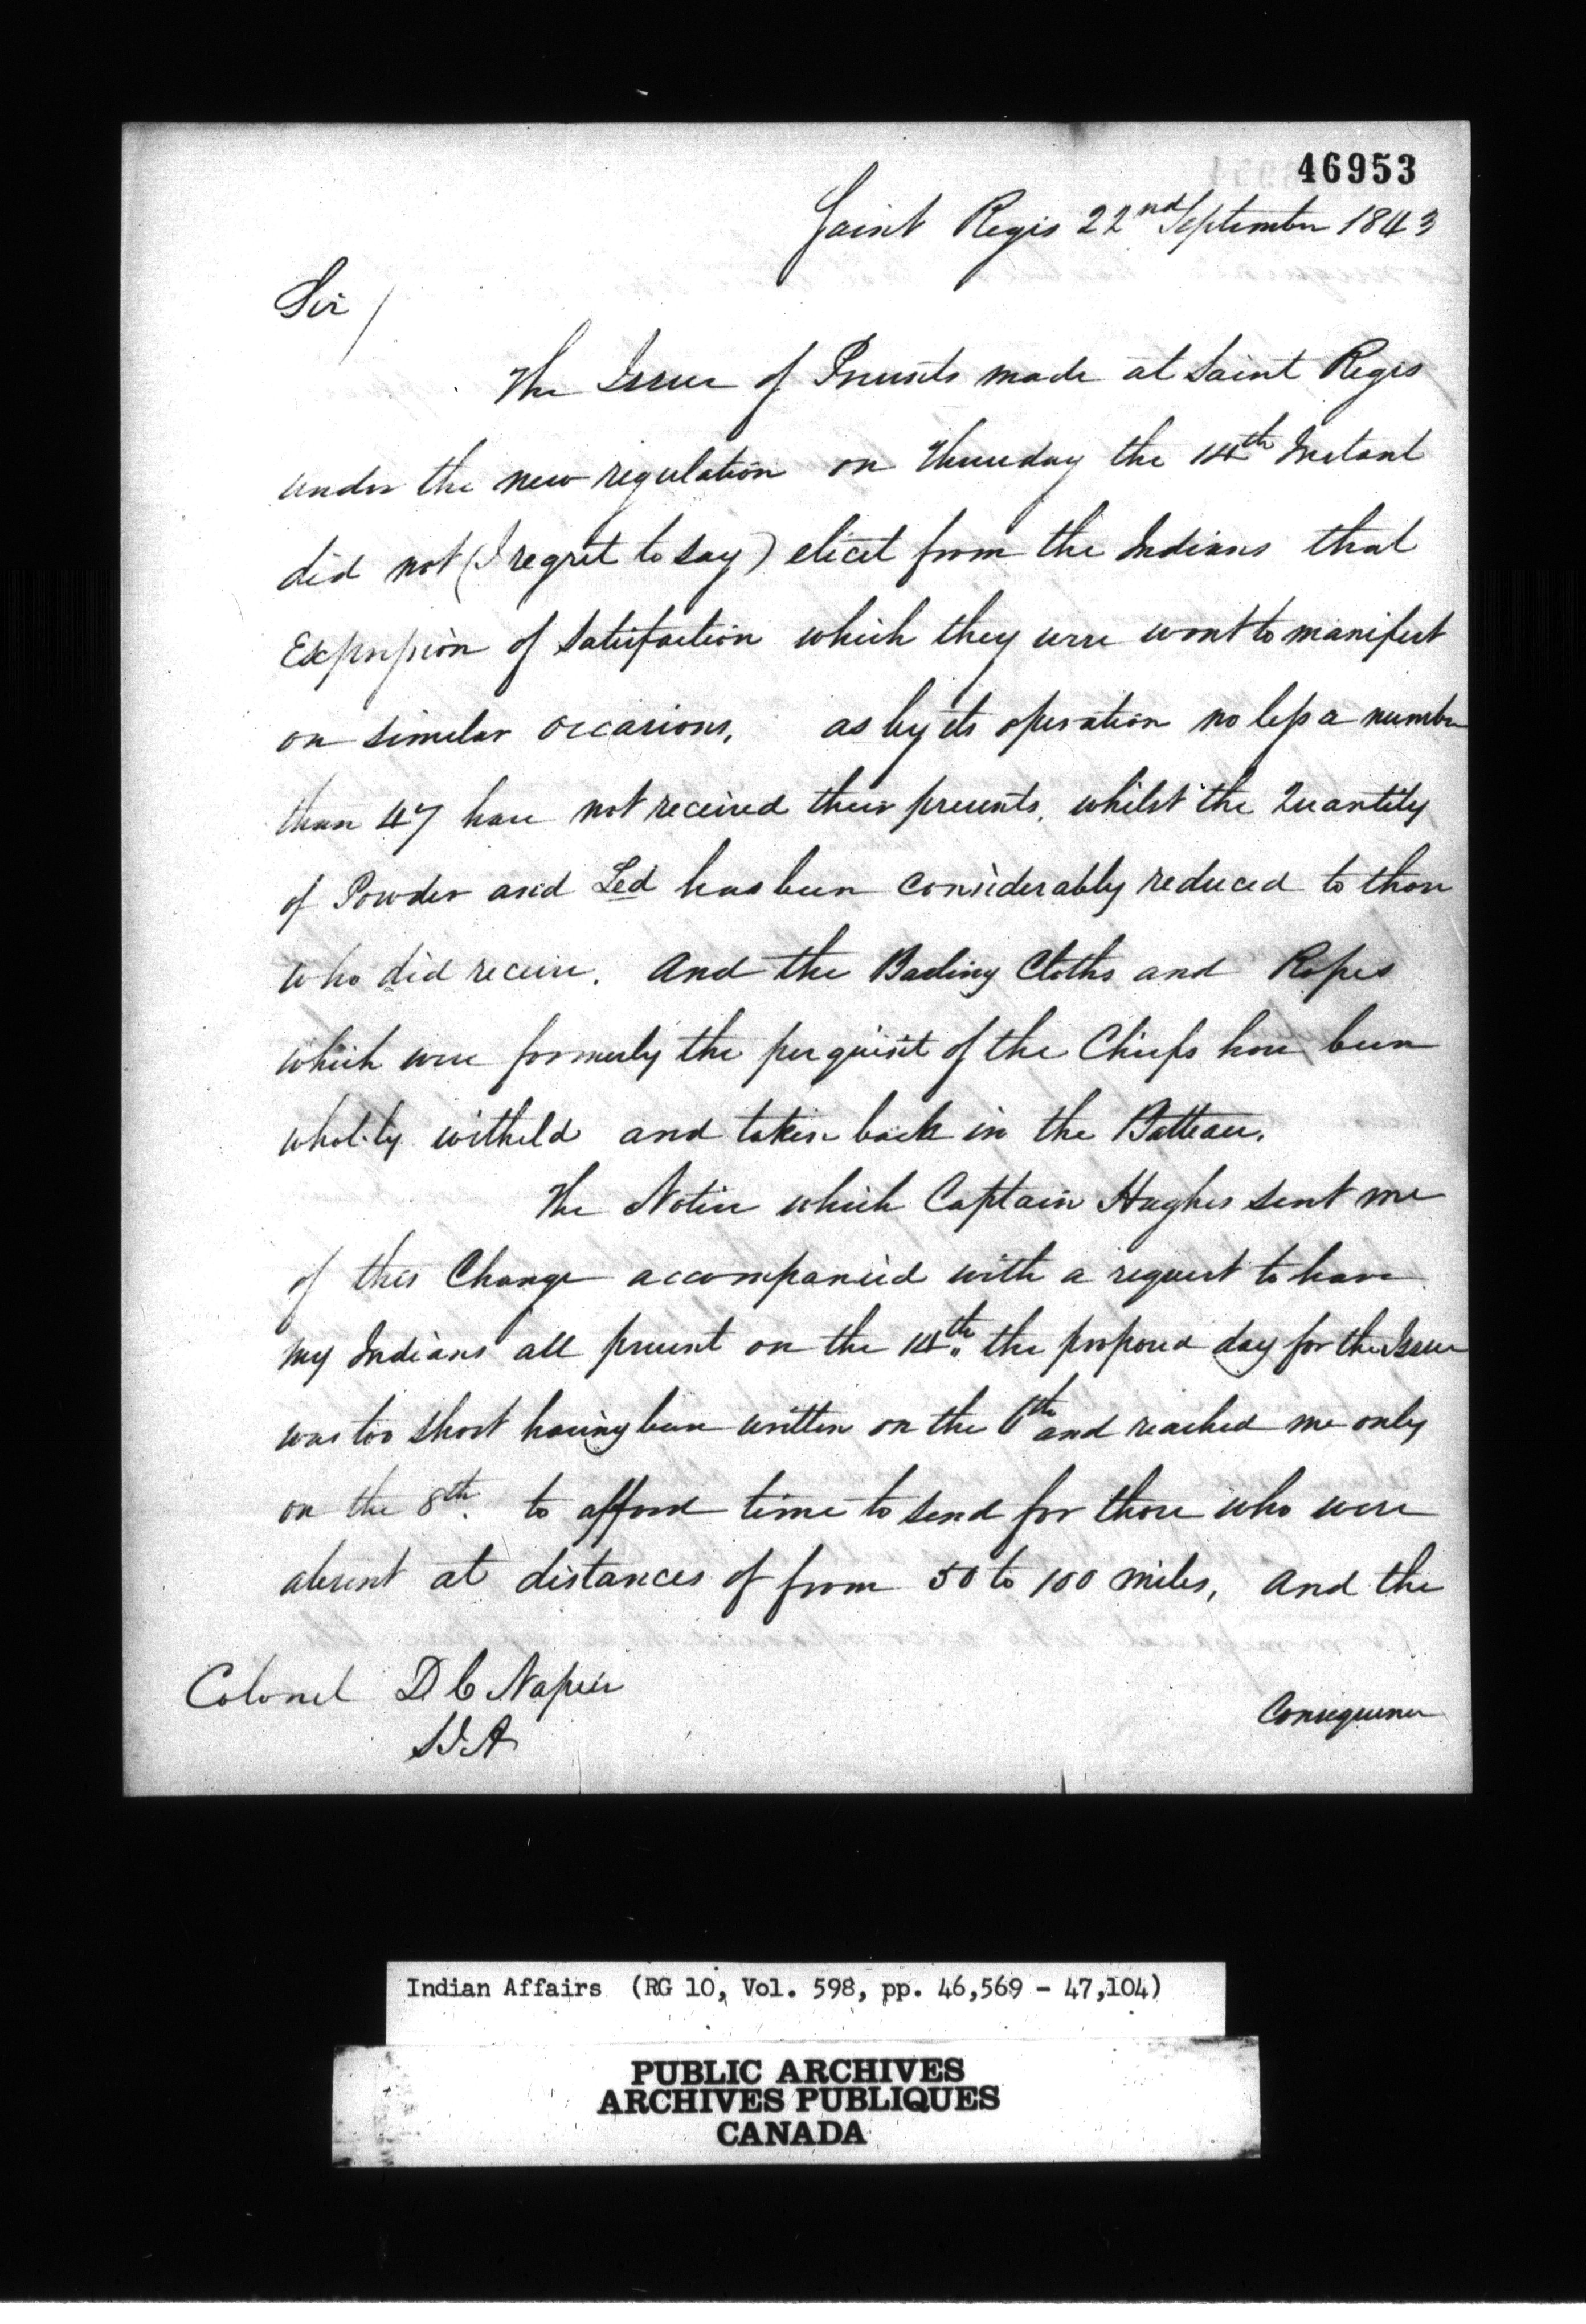 46953
Saint Regis 22nd September 1843
Sir /
The Issue of Presents made at Saint Regis
under the new regulation on Thursday the 14th Instant
did not (I regret to say) elicit from the Indians that
Expression of Satisfaction which they were wont to manifest
on similar occasions, as by its operation no less a number
than 47 have not received their presents, whilst the Quantity
of Powder and Led has been considerably reduced to those
who did receive. And the Bailing Cloths and Ropes
which were formerly the perquisit of the Chiefs have been
wholily witheld and taken back in the Batteau.
The Notice which Captain Hughes sent me
of this Change accompanied with a request to have
my Indians all present on the 14th the proposed day for the Issue
was too short having been written on the 6th and reached me only
on the 8th. to afford time to send for those who were
absent at distances of from 50 to 100 miles, And the
Colonel D C Napier
S.I.A
Consequence
Indian Affairs (RG 10, Vol. 598, pp. 46,569 - 47,104)
PUBLIC ARCHIVES
ARCHIVES PUBLIQUES
CANADA